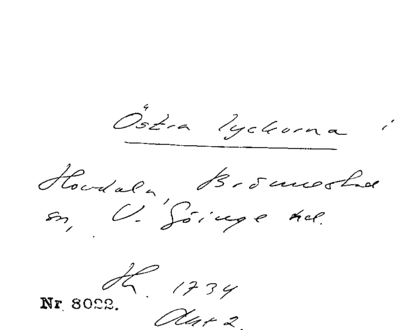 Östra lyckorna i
Hovdala, Brönnestad
sn, V. Göinge hd.
Jh. 1734
Nr 8022.
Akt 2